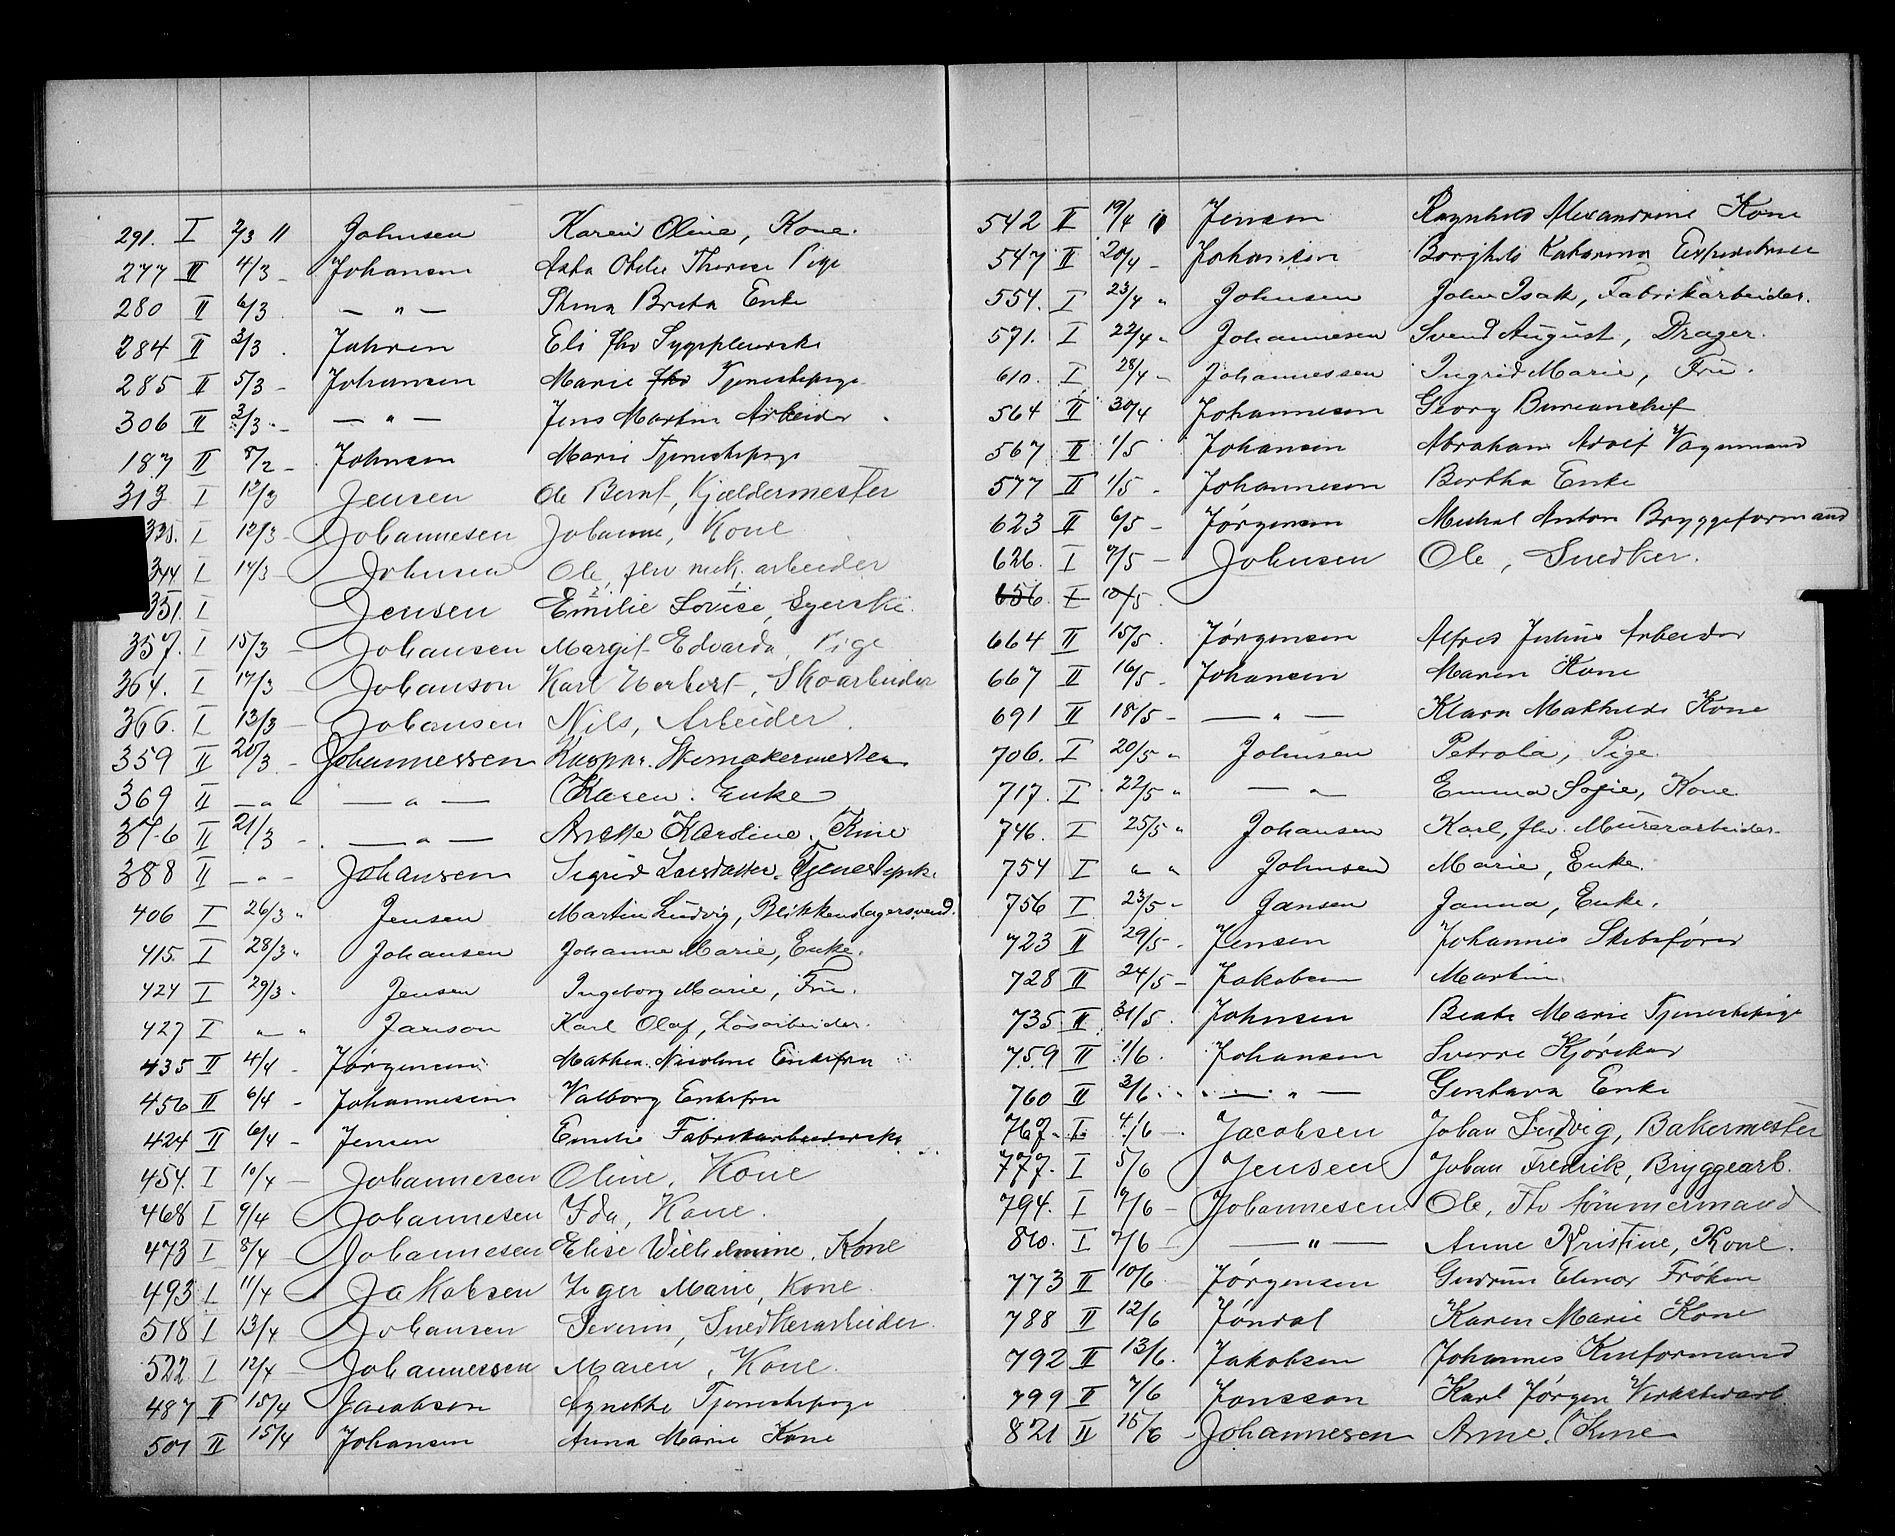 291. I 2/3 11 Johnsen Karen Oline, Kone.
277 II 4/3 - Johansen Asta Otilie Therese Pige
280 II 6/3 — " — Stina Breta Enke
284 II 3/3 . Jahren Eli fhv Sygepleierske
285 II 5/3 - Johansen Marie fhv Tjenestepige
306 II 3/3 - — " — Jens Martin Arbeider
187 II 8/2 - Johnsen Marie Tjenestepige
313 I 12/3 Jensen Ole Bernt, Kjældermester
I 12/3 - Johannesen Johanne, Kone
344 I 14/3 - Johnsen Ole, fhv mek. arbeider
351. I Jensen Emilie Lovise, Syerske.
357. I 15/3 - Johansen Margit Edvarda, Pige
364. I 17/3 - Johanson Karl Herbert, Skoarbeider
366. I 13/3 - Johansen Nils, Arbeider
359 II 20/3 - Johannessen Kaspar.
369 II — " — — " — Karen. Enke
376 II 21/3 - — " — Anette Karoline. Kone
388 II — " — Johansen Sigrid Larsdatter. Tjenestepik.
406 I 26/3 " Jensen Martin Ludvig, Blikkenslagersvend.
415. I 28/3 " Johansen Johanne Marie, Enke.
424 I 29/3 - Jensen Ingeborg Marie, Fru.
427 I " " Janson Karl Olaf, Løsarbeider.
435 II 4/4 - Jørgensen Mathea Nicoline Enkefru
456 II 6/4 - Johannesen Valborg Enkefru
424 II 6/4 - Jensen Emilie Fabrikarbeiderske
454. I 10/4 — Johannesen Oline, Kone
468 I 9/4 Johannesen Ida, Kone.
473 I 8/4 - Johannesen Elise Wilhelmine, Kone
493 I 11/4 Jakobsen Inger Marie, Kone
518 I 13/4 Johansen Severin, Snedkerarbeider.
522 I 12/4 - Johannessen Maren, Kone.
487 II 15/4 Jacobsen Agnethe Tjenestepige
501 II 15/4 Johansen Anna Marie Kone
542 II 19/4 11 Jensen Ragnhild Alexandrine Kone
547 II 20/4 - Johansen Borghild Katarina Expeditrice
554. I 23/4 " Johnsen John Isak, Fabrikarbeider.
571. I 22/4 " Johannesen Svend August, Drager.
610. I 28/4 - Johannessen Ingrid Marie, Fru.
564 II 30/4 Johannesen Georg Bureauchef
567 II 1/5 Johansen Abraham Adolf Vognmand
577 II 1/5 - Johannesen Bertha Enke
623 II 6/5 - Jørgensen Mikal Anton Bryggeformand
626. I 7/5 - Johnsen Ole, Snedker.
656 I 10/5.
664 II 15/5. Jørgensen Alfred Julius Arbeider
667 II 16/5 - Johansen Maren Kone
691 II 18/5 - — " — Klara Mathilde Kone
706. I 20/5 " Johnsen Petrola, Pige.
717. I 22/5 " — " Emma Sofie, Kone
746. I 25/5 " Johansen Karl, fhv. Murerarbeider.
754 I " " Johnsen Marie, Enke.
756 I 23/5 - Jansen Janna, Enke.
723 II 29/5 - Jensen Johannes Skibsfører
728 II 24/5 - Jakobsen Martin
735 II 31/5. Johnsen Beate Marie Tjenestepige
759 II 1/6. Johansen Sverre Kjørekar
760 II 3/6. — " — Gustava Enke
767. I 4/6 - Jacobsen Johan Ludvig, Bakermester
777. I 5/6 Jensen Johan Fredrik, Bryggearb.
794. I 7/6 - Johannesen Ole, Fhv tømmermand
810. I 7/6 - — " — Anne Kristine, Kone.
773 II 10/6. Jørgensen Gudrun Elinor Frøken
788 II 12/6 Jøndal Karen Marie Kone
792 II 13/6. Jakobsen Johannes
799 II 7/6 Jonsson Karl Jørgen Verkstedarb
821 II 15/6 - Johannesen Anne. Kone